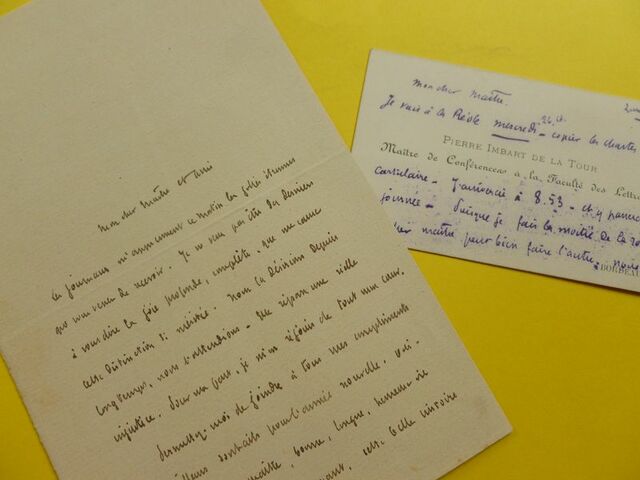 Mon cher Maître et ami
Les journaux m'annoncent ce matin les jolies étrennes
que vous venez de recevoir. Je ne veux pas être des derniers
à vous dire la joie profonde, complète, que me cause
cette distinction si méritée. Nous la désirions depuis
longtemps, nous l'attendions. Elle répare une vieille
injustice. Pour ma part, je m'en réjouis de tout mon cœur.
Permettez-moi de joindre à tous mes compliments
meilleurs souhaits pour l'année nouvelle.
maître, bonne, longue, heureuse vie
cette belle histoire
Mon cher Maître.
Je vais à la Réole mercredi 26 ct copier les chartes
PIERRE IMBART DE LA TOUR
Maître de Conférences à la Faculté des Lettres
cartulaire. J'arriverai à 8.53 - et y passerai
journée. Puisque je fais la moitié de la
maître peut bien faire l'autre. nous
BORDEAU